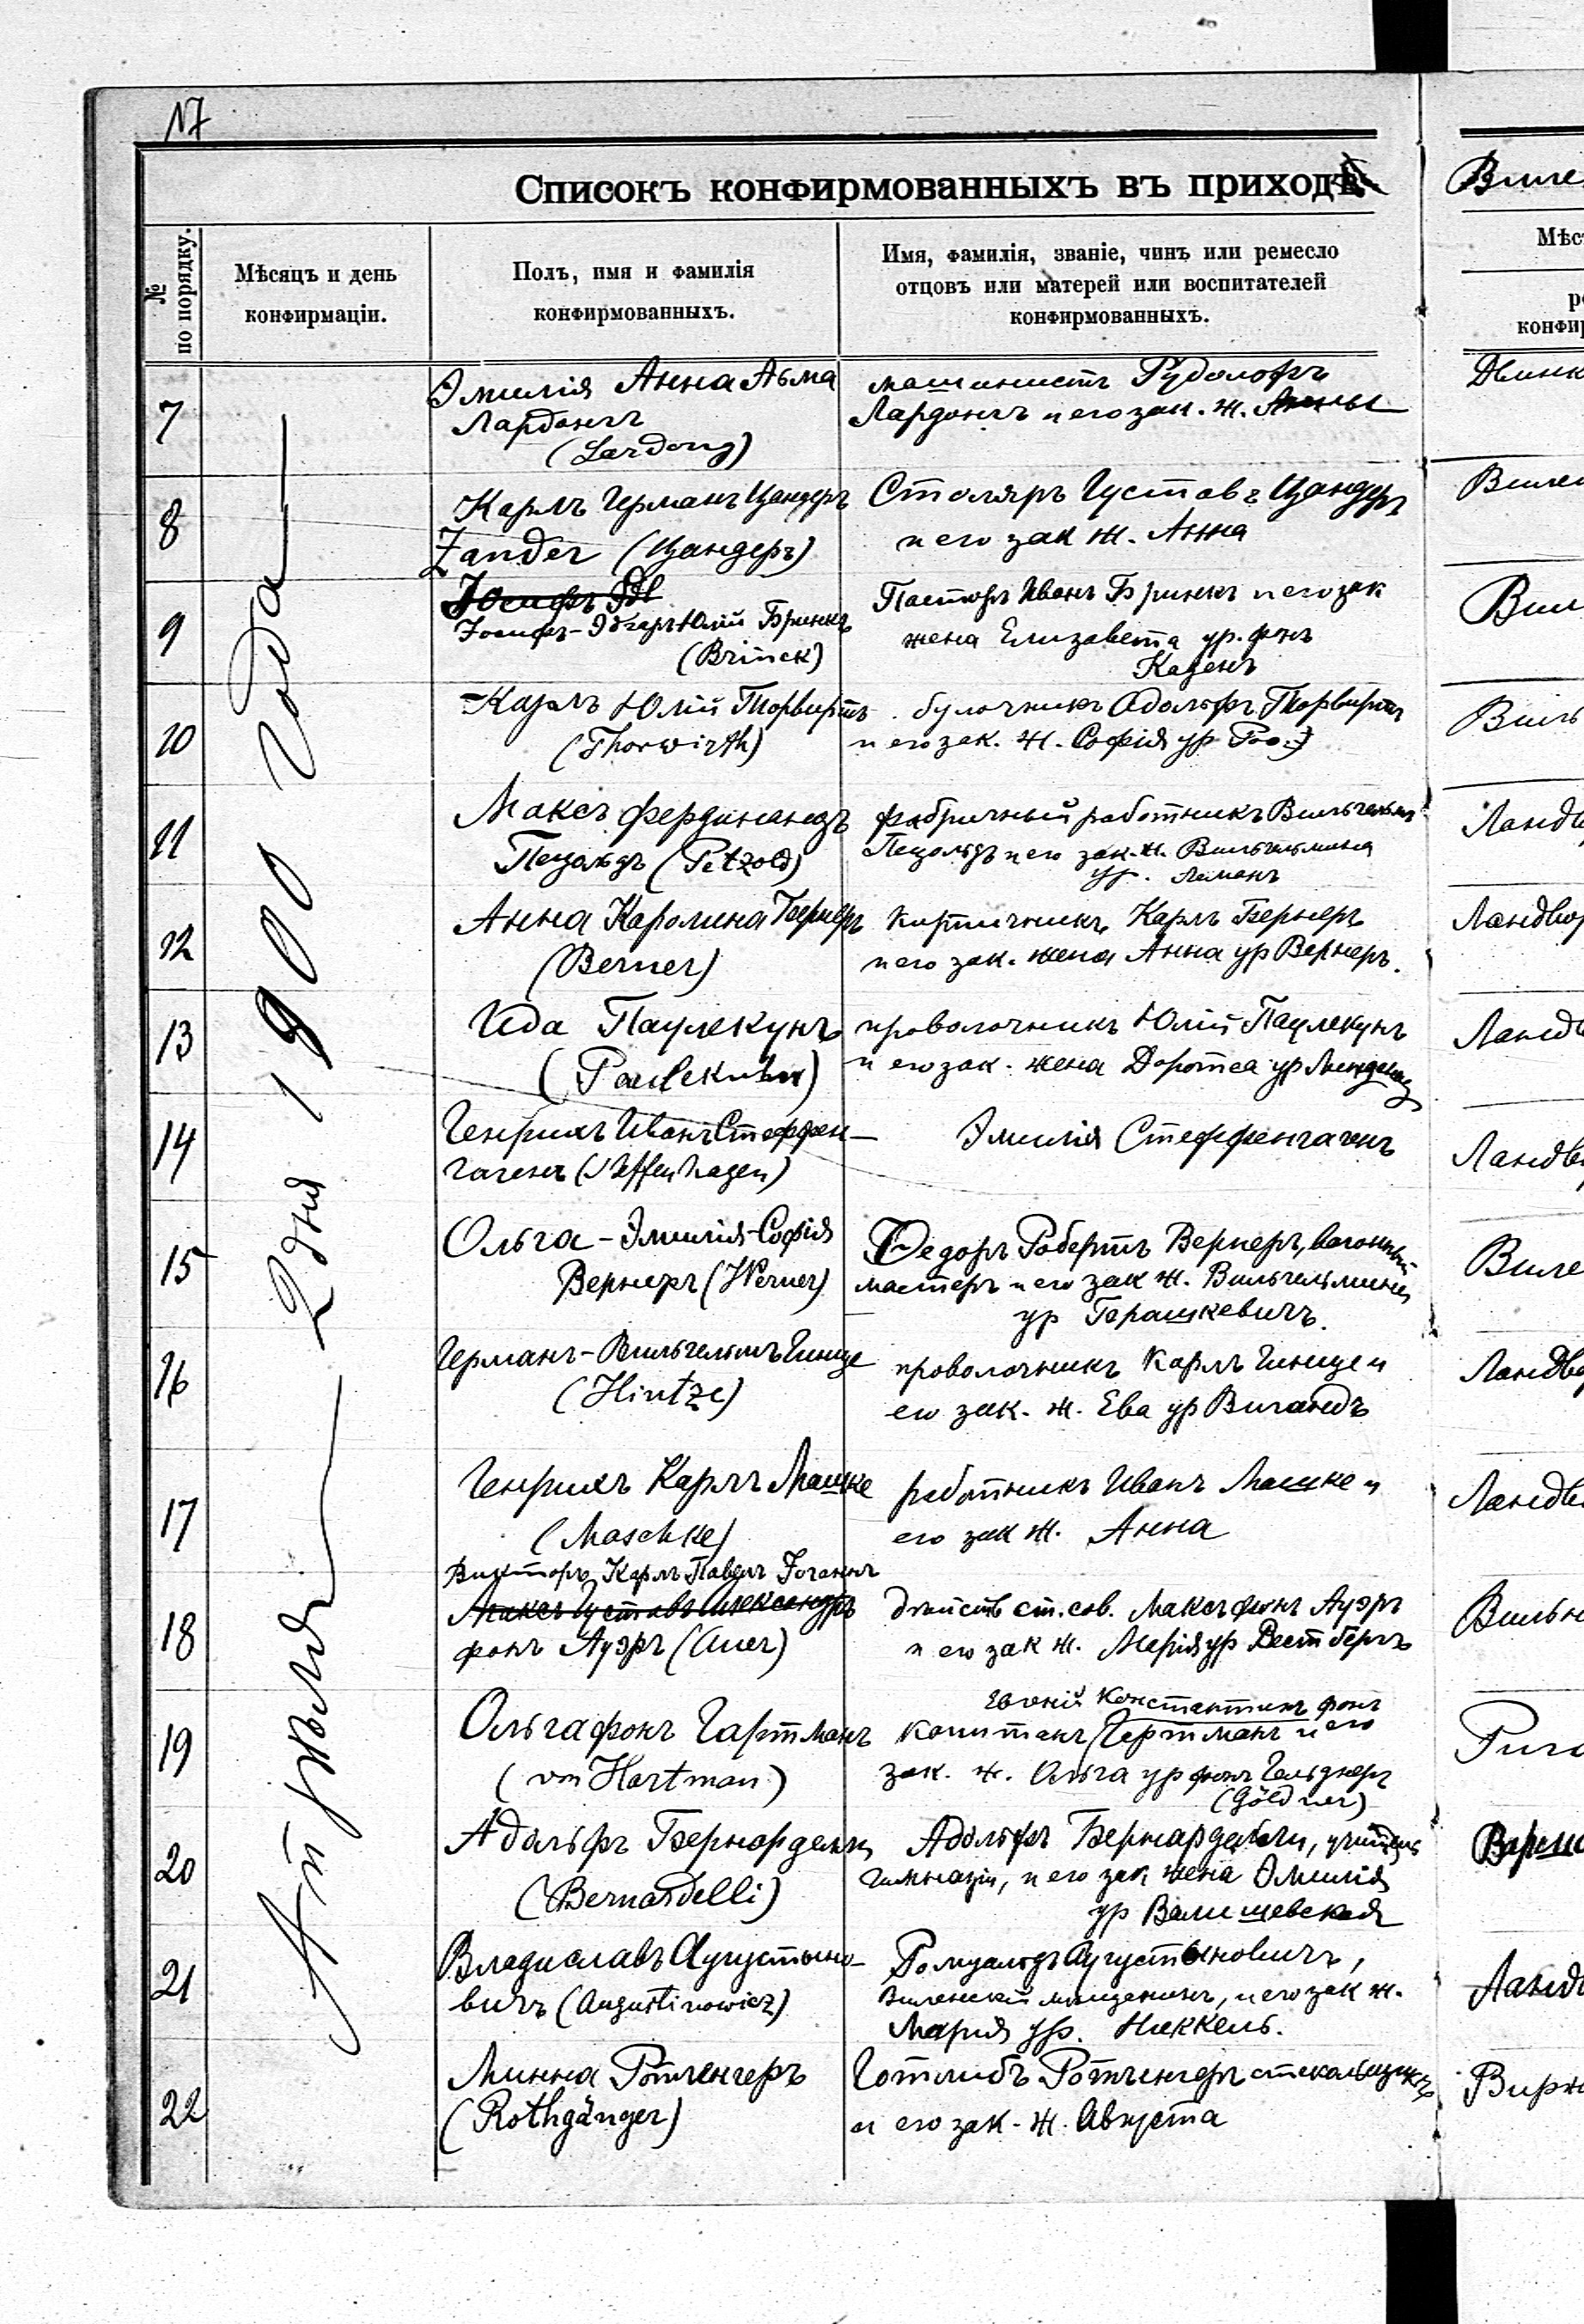 17
Списокъ конфирмованныхъ въ приходѣ
Виле
№ по порядку.
Мѣсяцъ и день
конфирмаціи.
Полъ, имя и фамилія
конфирмованныхъ.
Имя, фамилія, званіе, чинъ или ремесло
отцовъ или матерей или воспитателей
конфирмованныхъ.
Мѣс
ро
конфир
Апрѣля 2 дня 1900 года
7
Эмилія Анна Алма
Лардонгъ
(Lardong)
машинистъ Рудольфъ
Лардонгъ и его зак. ж. Анны
Двинк
8
Карлъ Германъ Цандеръ
Zander (Цандеръ)
Столяръ Густавъ Цандеръ
и его зак ж. Анна
Вилен
9
Іосифъ
Іосифъ-Эдгаръ Юлій Бринкъ
(Brinck)
Пасторъ Иванъ Бринкъ и его зак
жена Елизавета ур. фонъ
Каденъ
Вил
10
Карлъ Юлій Торвиртъ
(Thorwirth)
булочникъ Адольфъ Торвиртъ
и его зак. ж. Софія ур
Виль
11
Максъ Фердинандъ
Пецольдъ (Petzold)
фабричный работникъ Вильгельмъ
Пецольдъ и его зак. ж. Вильгельмина
ур. Леманъ
Ландв
12
Анна Каролина Бернеръ
(Berner)
кирпичникъ Карлъ Бернеръ
и его зак. жена Анна ур Вернеръ.
Ландвор
13
Ида Паулекунъ
(Paulekuhn)
проволочникъ Юлій Паулекунъ
и его зак. жена Доротеа ур
Ландв
14
Генрихъ Иванъ Стеффен-
гагенъ (Steffenhagen)
Эмилія Стеффенгагенъ
Ландв
15
Ольга-Эмилія-Софія
Вернеръ (Werner)
Федоръ Робертъ Вернеръ, вагонный
мастеръ и его зак ж. Вильгельмина
ур Герашкевичъ.
Виле
16
Германъ-Вильгельмъ Гинце
(Hintze)
проволочникъ Карлъ Гинце и
его зак. ж. Ева ур Вигандъ
Ландво
17
Генрихъ Карлъ Машке
(Maschke)
работникъ Иванъ Машке и
его зак ж. Анна
Ландв
18
Викторъ Карлъ Павелъ Іоганнъ
Максъ Густавъ Александръ
фонъ Ауэръ (Auer)
дѣйств ст. сов. Максъ фонъ Ауэръ
и его зак ж. Марія ур Вестбергъ
Вильн
19
Ольга фонъ Гартманъ
(von Hartman)
Евгеній Константинъ фонъ
капитанъ Гартманъ и его
зак. ж. Ольга ур фонъ Гельднеръ
(Göldner)
Риг
20
Адольфъ Бернарделли
(Bernardelli)
Адольфъ Бернарделли, учитель
гимназіи, и его зак жена Эмилія
ур Валишевская
Варш
21
Владиславъ Аугустыно-
вичъ (Augustinowicz)
Ромуальдъ Аугустыновичъ,
Виленскій мѣщанинъ, и его зак ж.
Марія ур. Никкель.
Ландв
22
Минна Ротгенгеръ
(Rothgänger)
Готлибъ Ротгенгеръ стекольщикъ
и его зак. ж. Августа
Вирж